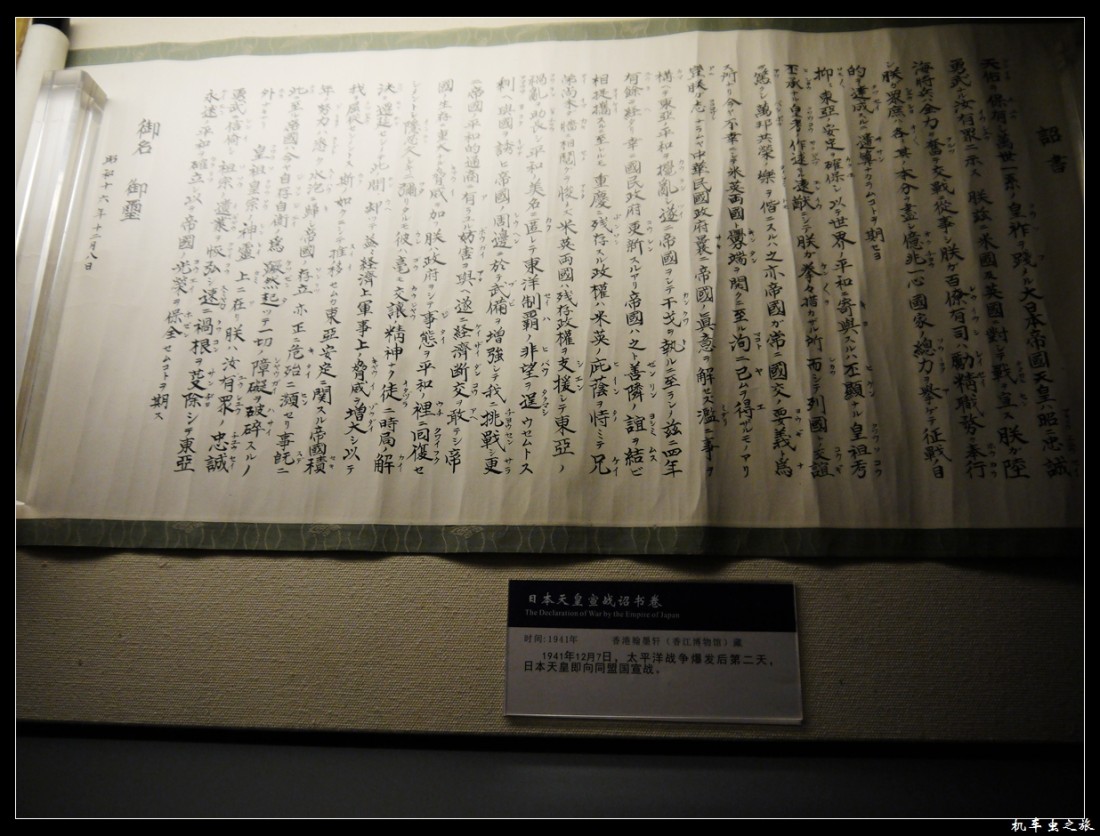 詔書
天佑ヲ保有シ萬世一系ノ皇祚ヲ踐メル大日本帝國天皇ハ昭ニ忠誠
勇武ナル汝有眾ニ示ス 朕茲ニ米國及英國ニ對シテ戰ヲ宣ス朕ガ陸
海將兵ハ全力ヲ奮テ交戰ニ從事シ朕ガ百僚有司ハ勵精職務ヲ奉行
シ朕ガ眾庶ハ各々其ノ本分ヲ盡シ億兆一心國家ノ總力ヲ擧ゲテ征戰ノ目
的ヲ達成スルニ遺算ナカラムコトヲ期セヨ
抑々東亞ノ安定ヲ確保シ以テ世界ノ平和ニ寄與スルハ丕顯ナル皇祖考
丕承ナル皇考ノ作述セル遠猷ニシテ朕ガ拳々措カザル所而シテ列國トノ交誼
ヲ篤クシ萬邦共榮ノ樂ヲ偕ニスルハ之亦帝國ガ常ニ國交ノ要義ト爲
ス所ナリ今ヤ不幸ニシテ米英両國ト釁端ヲ開クニ至ル洵ニ已ムヲ得ザルモノアリ
豈朕ガ志ナラムヤ中華民國政府曩ニ帝國ノ眞意ヲ解セズ濫ニ事ヲ
構ヘテ東亞ノ平和ヲ攪亂シ遂ニ帝國ヲシテ干戈ヲ執ルニ至ラシメ茲ニ四年
有餘ヲ經タリ幸ニ國民政府更新スルアリ帝國ハ之ト善隣ノ誼ヲ結ビ
相提攜スルニ至レルモ重慶ニ残存スル政權ハ米英ノ庇蔭ヲ恃ミテ兄
弟尚未ダ牆ニ相鬩グヲ悛メズ米英両國ハ残存政權ヲ支援シテ東亞ノ
禍亂ヲ助長シ平和ノ美名ニ匿レテ東洋制覇ノ非望ヲ逞ウセムトス
剰ヘ與國ヲ誘ヒ帝國ノ周邊ニ於テ武備ヲ增強シテ我ニ挑戰シ更
ニ帝國ノ平和的通商ニ有ラユル妨害ヲ與ヘ遂ニ経済斷交ヲ敢テシ帝
國ノ生存ニ重大ナル脅威ヲ加フ 朕ハ政府ヲシテ事態ヲ平和ノ裡ニ回復セ
シメントシ隱忍久シキニ彌リタルモ彼ハ毫モ交讓ノ精神ナク徒ニ時局ノ解
決ヲ遷延セシメテ此ノ間却ツテ益々経済上軍事上ノ脅威ヲ増大シ以テ
我ヲ屈從セシメントス斯ノ如クニシテ推移セムカ東亞安定ニ関スル帝國積
年ノ努力ハ悉ク水泡ニ歸シ帝國ノ存立亦正ニ危殆ニ瀕セリ事既ニ
此ニ至ル帝國ハ今ヤ自存自衛ノ爲蹶然起ツテ一切ノ障礙ヲ破碎スルノ
外ナキナリ
皇祖皇宗ノ神靈上ニ在リ朕ハ汝有眾ノ忠誠
勇武ニ信倚シ祖宗ノ遺業ヲ恢弘シ速ニ禍根ヲ芟除シテ東亞
永遠ノ平和ヲ確立シ以テ帝國ノ光榮ヲ保全セムコトヲ期ス
御名 御璽
昭和十六年十二月八日
日本天皇宣战诏书卷
The Declaration of War by the Empire of Japan
时间:1941年 香港翰墨轩（香江博物馆）藏
1941年12月7日，太平洋战争爆发后第二天，
日本天皇即向同盟国宣战。
机车虫之旅